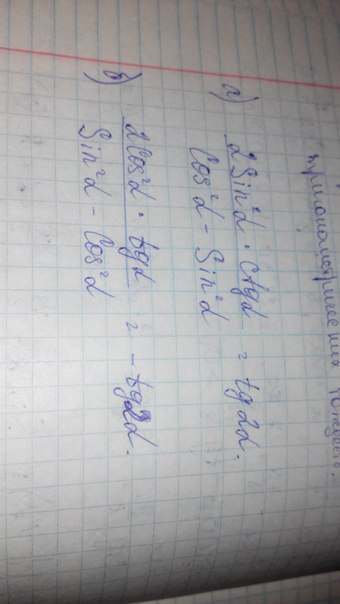 тригонометрических тождеств.
а) 2Sin²α · ctgα / Cos²α - Sin²α = tg2α.
б) 2Cos²α · tgα / Sin²α - Cos²α = - tg2α.